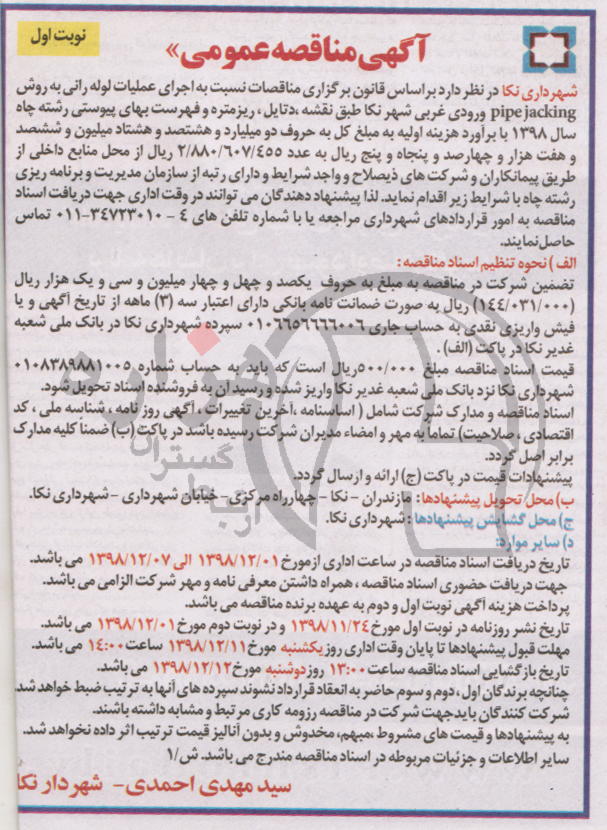 نوبت اول
آگهی مناقصه عمومی»
شهرداری نکا در نظر دارد براساس قانون برگزاری مناقصات نسبت به اجرای عملیات لوله رانی به روش
pipe jacking ورودی غربی شهر نکا طبق نقشه ،دتایل ، ریزمتره و فهرست بهای پیوستی رشته چاه
سال ۱۳۹۸ با برآورد هزینه اولیه به مبلغ کل به حروف دو میلیارد و هشتصد و هشتاد میلیون و ششصد
و هفت هزار و چهارصد و پنجاه و پنج ریال به عدد ۲/۸۸۰/۶۰۷/۴۵۵ ریال از محل منابع داخلی از
طریق پیمانکاران و شرکت های ذیصلاح و واجد شرایط و دارای رتبه از سازمان مدیریت و برنامه ریزی
رشته چاه با شرایط زیر اقدام نماید. لذا پیشنهاد دهندگان می توانند در وقت اداری جهت دریافت اسناد
مناقصه به امور قراردادهای شهرداری مراجعه یا با شماره تلفن های ۴ - ۳۴۷۲۳۰۱۰-۰۱۱ تماس
حاصل نمایند.
الف ) نحوه تنظیم اسناد مناقصه :
تضمین شرکت در مناقصه به مبلغ به حروف یکصد و چهل و چهار میلیون و سی و یک هزار ریال
(۱۴۴/۰۳۱/۰۰۰) ریال به صورت ضمانت نامه بانکی دارای اعتبار سه (۳) ماهه از تاریخ آگهی و یا
فیش واریزی نقدی به حساب جاری ۰۱۰۶۶۵۶۶۶۶۰۰۶ سپرده شهرداری نکا در بانک ملی شعبه
غدیر نکا در پاکت (الف) .
قیمت اسناد مناقصه مبلغ ۵۰۰/۰۰۰ریال است که باید به حساب شماره ۰۱۰۸۳۸۹۸۸۱۰۰۵
شهرداری نکا نزد بانک ملی شعبه غدیر نکا واریز شده و رسید ان به فروشنده اسناد تحویل شود.
اسناد مناقصه و مدارک شرکت شامل ( اساسنامه ،آخرین تغییرات ، آگهی روز نامه ، شناسه ملی ، کد
اقتصادی ، صلاحیت) تماما به مهر و امضاء مدیران شرکت رسیده باشد در پاکت (ب) ضمنا کلیه مدارک
برابر اصل گردد.
پیشنهادات قیمت در پاکت (ج) ارائه و ارسال گردد.
ب) محل تحویل پیشنهادها: مازندران - نکا - چهارراه مرکزی - خیابان شهرداری - شهرداری نکا.
ج) محل گشایش پیشنهادها : شهرداری نکا.
د) سایر موارد:
تاریخ دریافت اسناد مناقصه در ساعت اداری از مورخ ۱۳۹۸/۱۲/۰۱ الی ۱۳۹۸/۱۲/۰۷ می باشد.
جهت دریافت حضوری اسناد مناقصه ، همراه داشتن معرفی نامه و مهر شرکت الزامی می باشد.
پرداخت هزینه آگهی نوبت اول و دوم به عهده برنده مناقصه می باشد.
تاریخ نشر روزنامه در نوبت اول مورخ ۱۳۹۸/۱۱/۲۴ و در نوبت دوم مورخ ۱۳۹۸/۱۲/۰۱ می باشد.
مهلت قبول پیشنهادها تا پایان وقت اداری روز یکشنبه مورخ ۱۳۹۸/۱۲/۱۱ ساعت ۱۴:۰۰ می باشد.
تاریخ بازگشایی اسناد مناقصه ساعت ۱۳:۰۰ روز دوشنبه مورخ ۱۳۹۸/۱۲/۱۲ می باشد.
چنانچه برندگان اول ، دوم و سوم حاضر به انعقاد قرارداد نشوند سپرده های آنها به ترتیب ضبط خواهد شد.
شرکت کنندگان باید جهت شرکت در مناقصه رزومه کاری مرتبط و مشابه داشته باشند.
به پیشنهادها و قیمت های مشروط ،مبهم، مخدوش و بدون آنالیز قیمت ترتیب اثر داده نخواهد شد.
سایر اطلاعات و جزئیات مربوطه در اسناد مناقصه مندرج می باشد. ش/۱
سید مهدی احمدی - شهردار نکا